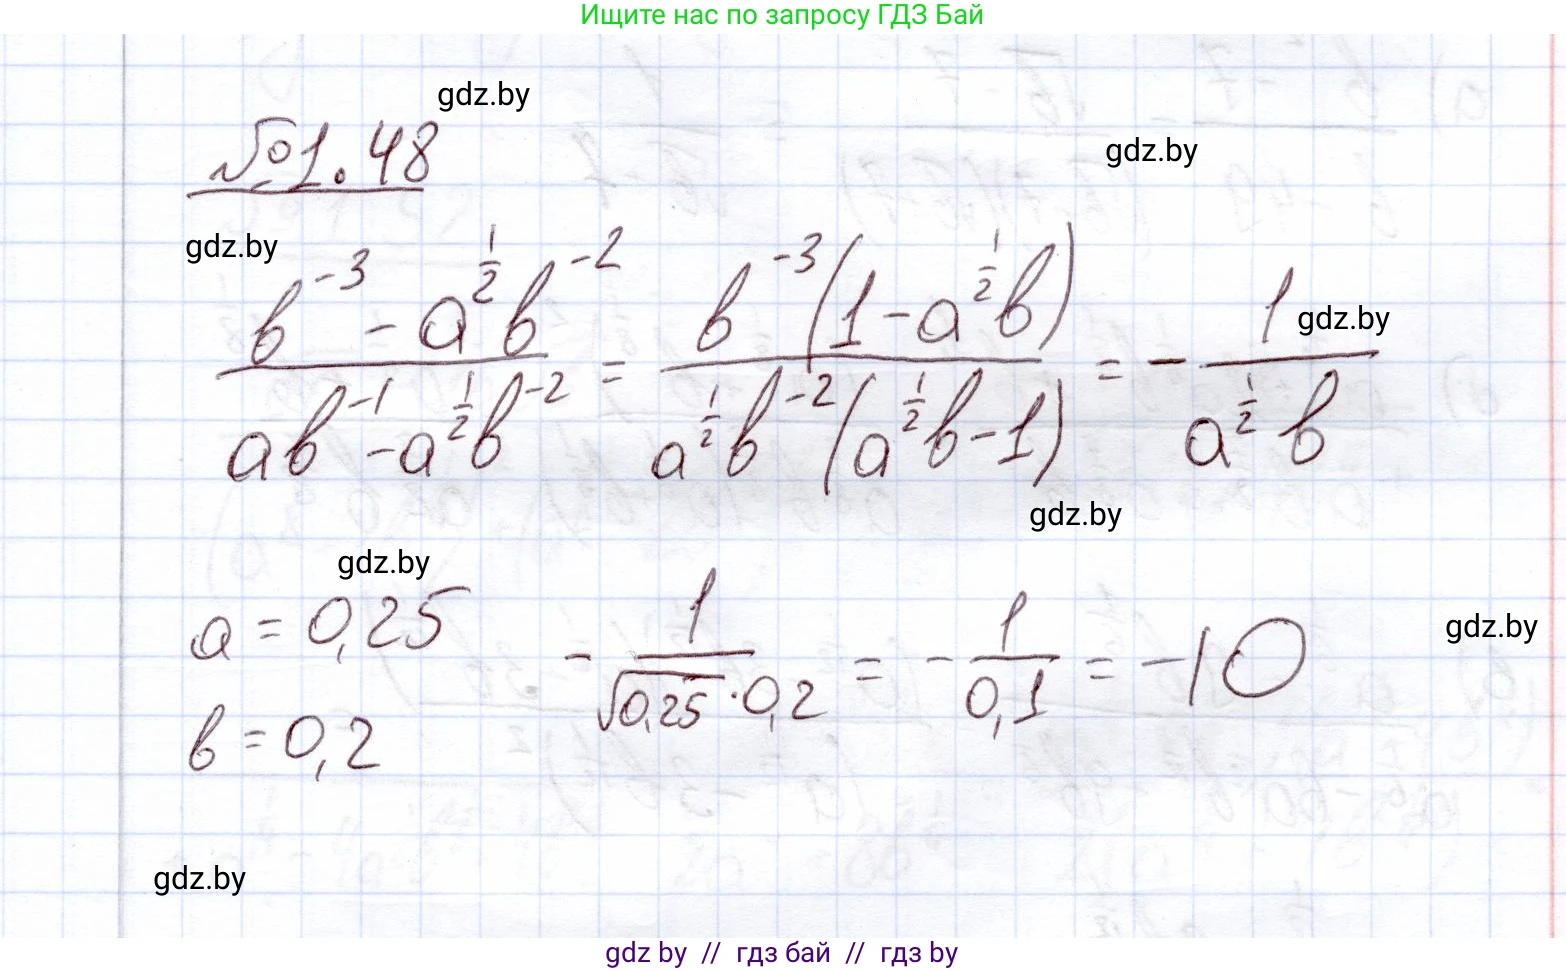 Ищите нас по запросу ГДЗ Бай
gdz.by
№1.48
gdz.by
gdz.by
(b^{-3} - a^{1/2}b^{-2})/(ab^{-1} - a^{1/2}b^{-2}) = (b^{-3}(1 - a^{1/2}b))/(a^{1/2}b^{-2}(a^{1/2}b - 1)) = -1/(a^{1/2}b)
gdz.by
gdz.by
gdz.by
a = 0,25
-1/(√0,25 · 0,2) = -1/0,1 = -10
gdz.by
b = 0,2
gdz.by
gdz by // гдз бай // гдз by